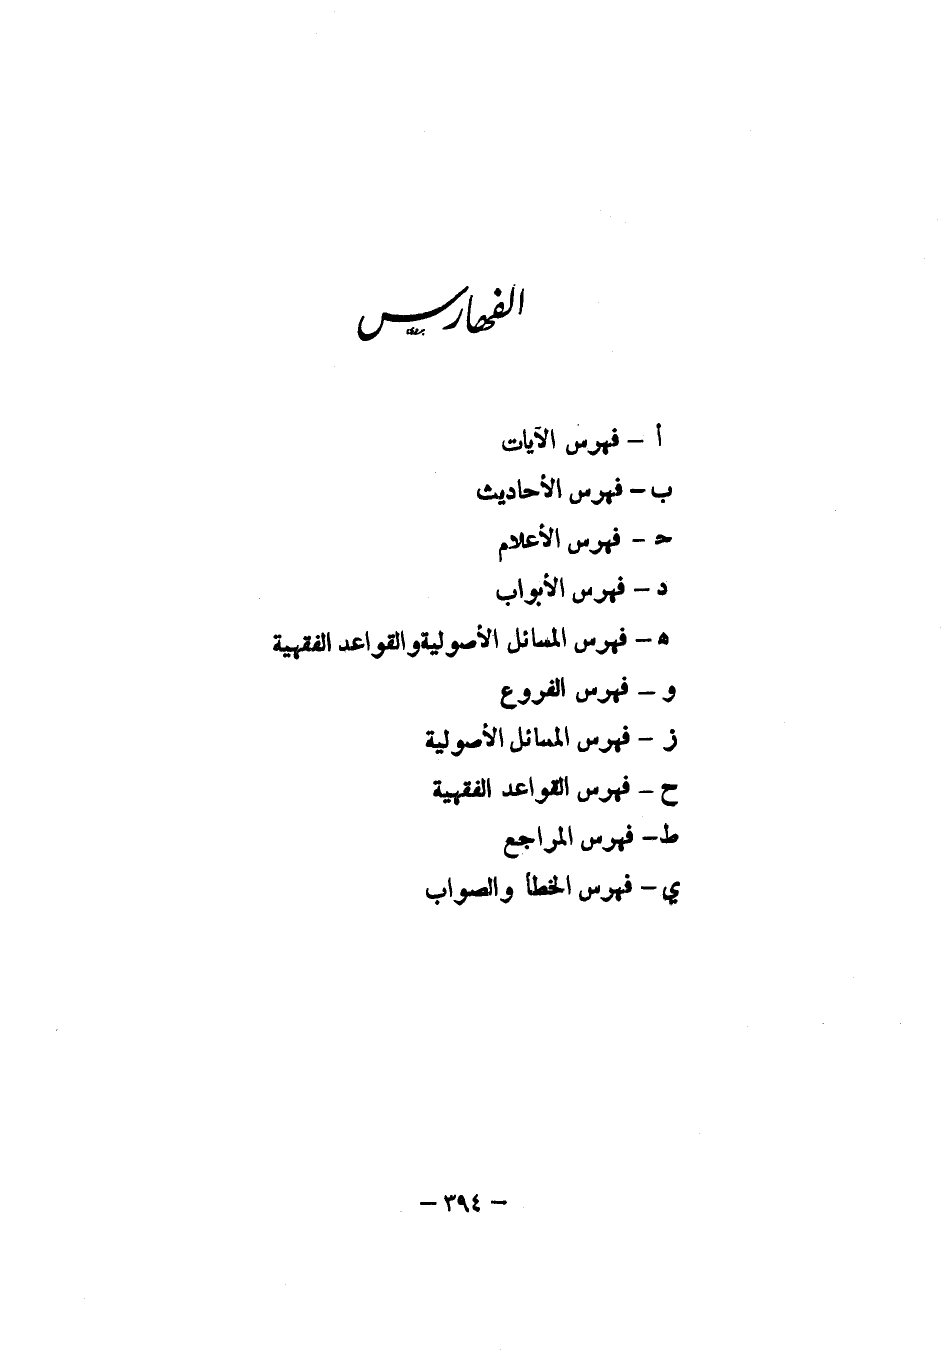 الفهارس
أ – فهرس الآيات
ب – فهرس الأحاديث
حـ – فهرس الأعلام
د – فهرس الأبواب
هـ – فهرس المسائل الأصولية والقواعد الفقهية
و – فهرس الفروع
ز – فهرس المسائل الأصولية
ح – فهرس القواعد الفقهية
ط – فهرس المراجع
ي – فهرس الخطأ والصواب
– ٣٩٤ –